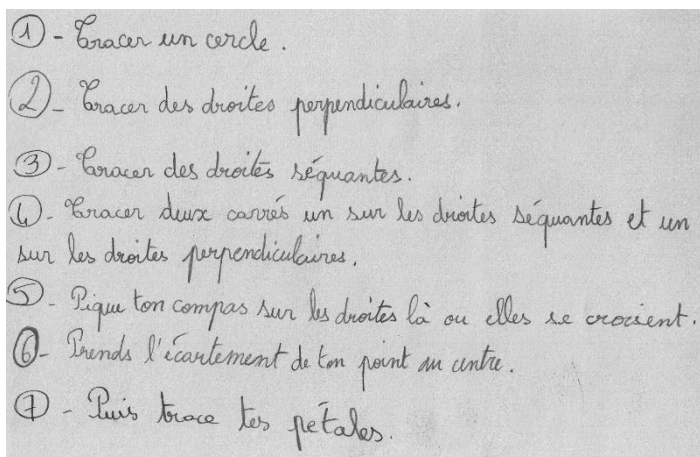 ① - Tracer un cercle.
② - Tracer des droites perpendiculaires.
③ - Tracer des droites séquantes.
④ - Tracer deux carrés un sur les droites séquantes et un
sur les droites perpendiculaires.
⑤ - Pique ton compas sur les droites là ou elles se croisent.
⑥ - Prends l'écartement de ton point au centre.
⑦ - Puis trace tes pétales.